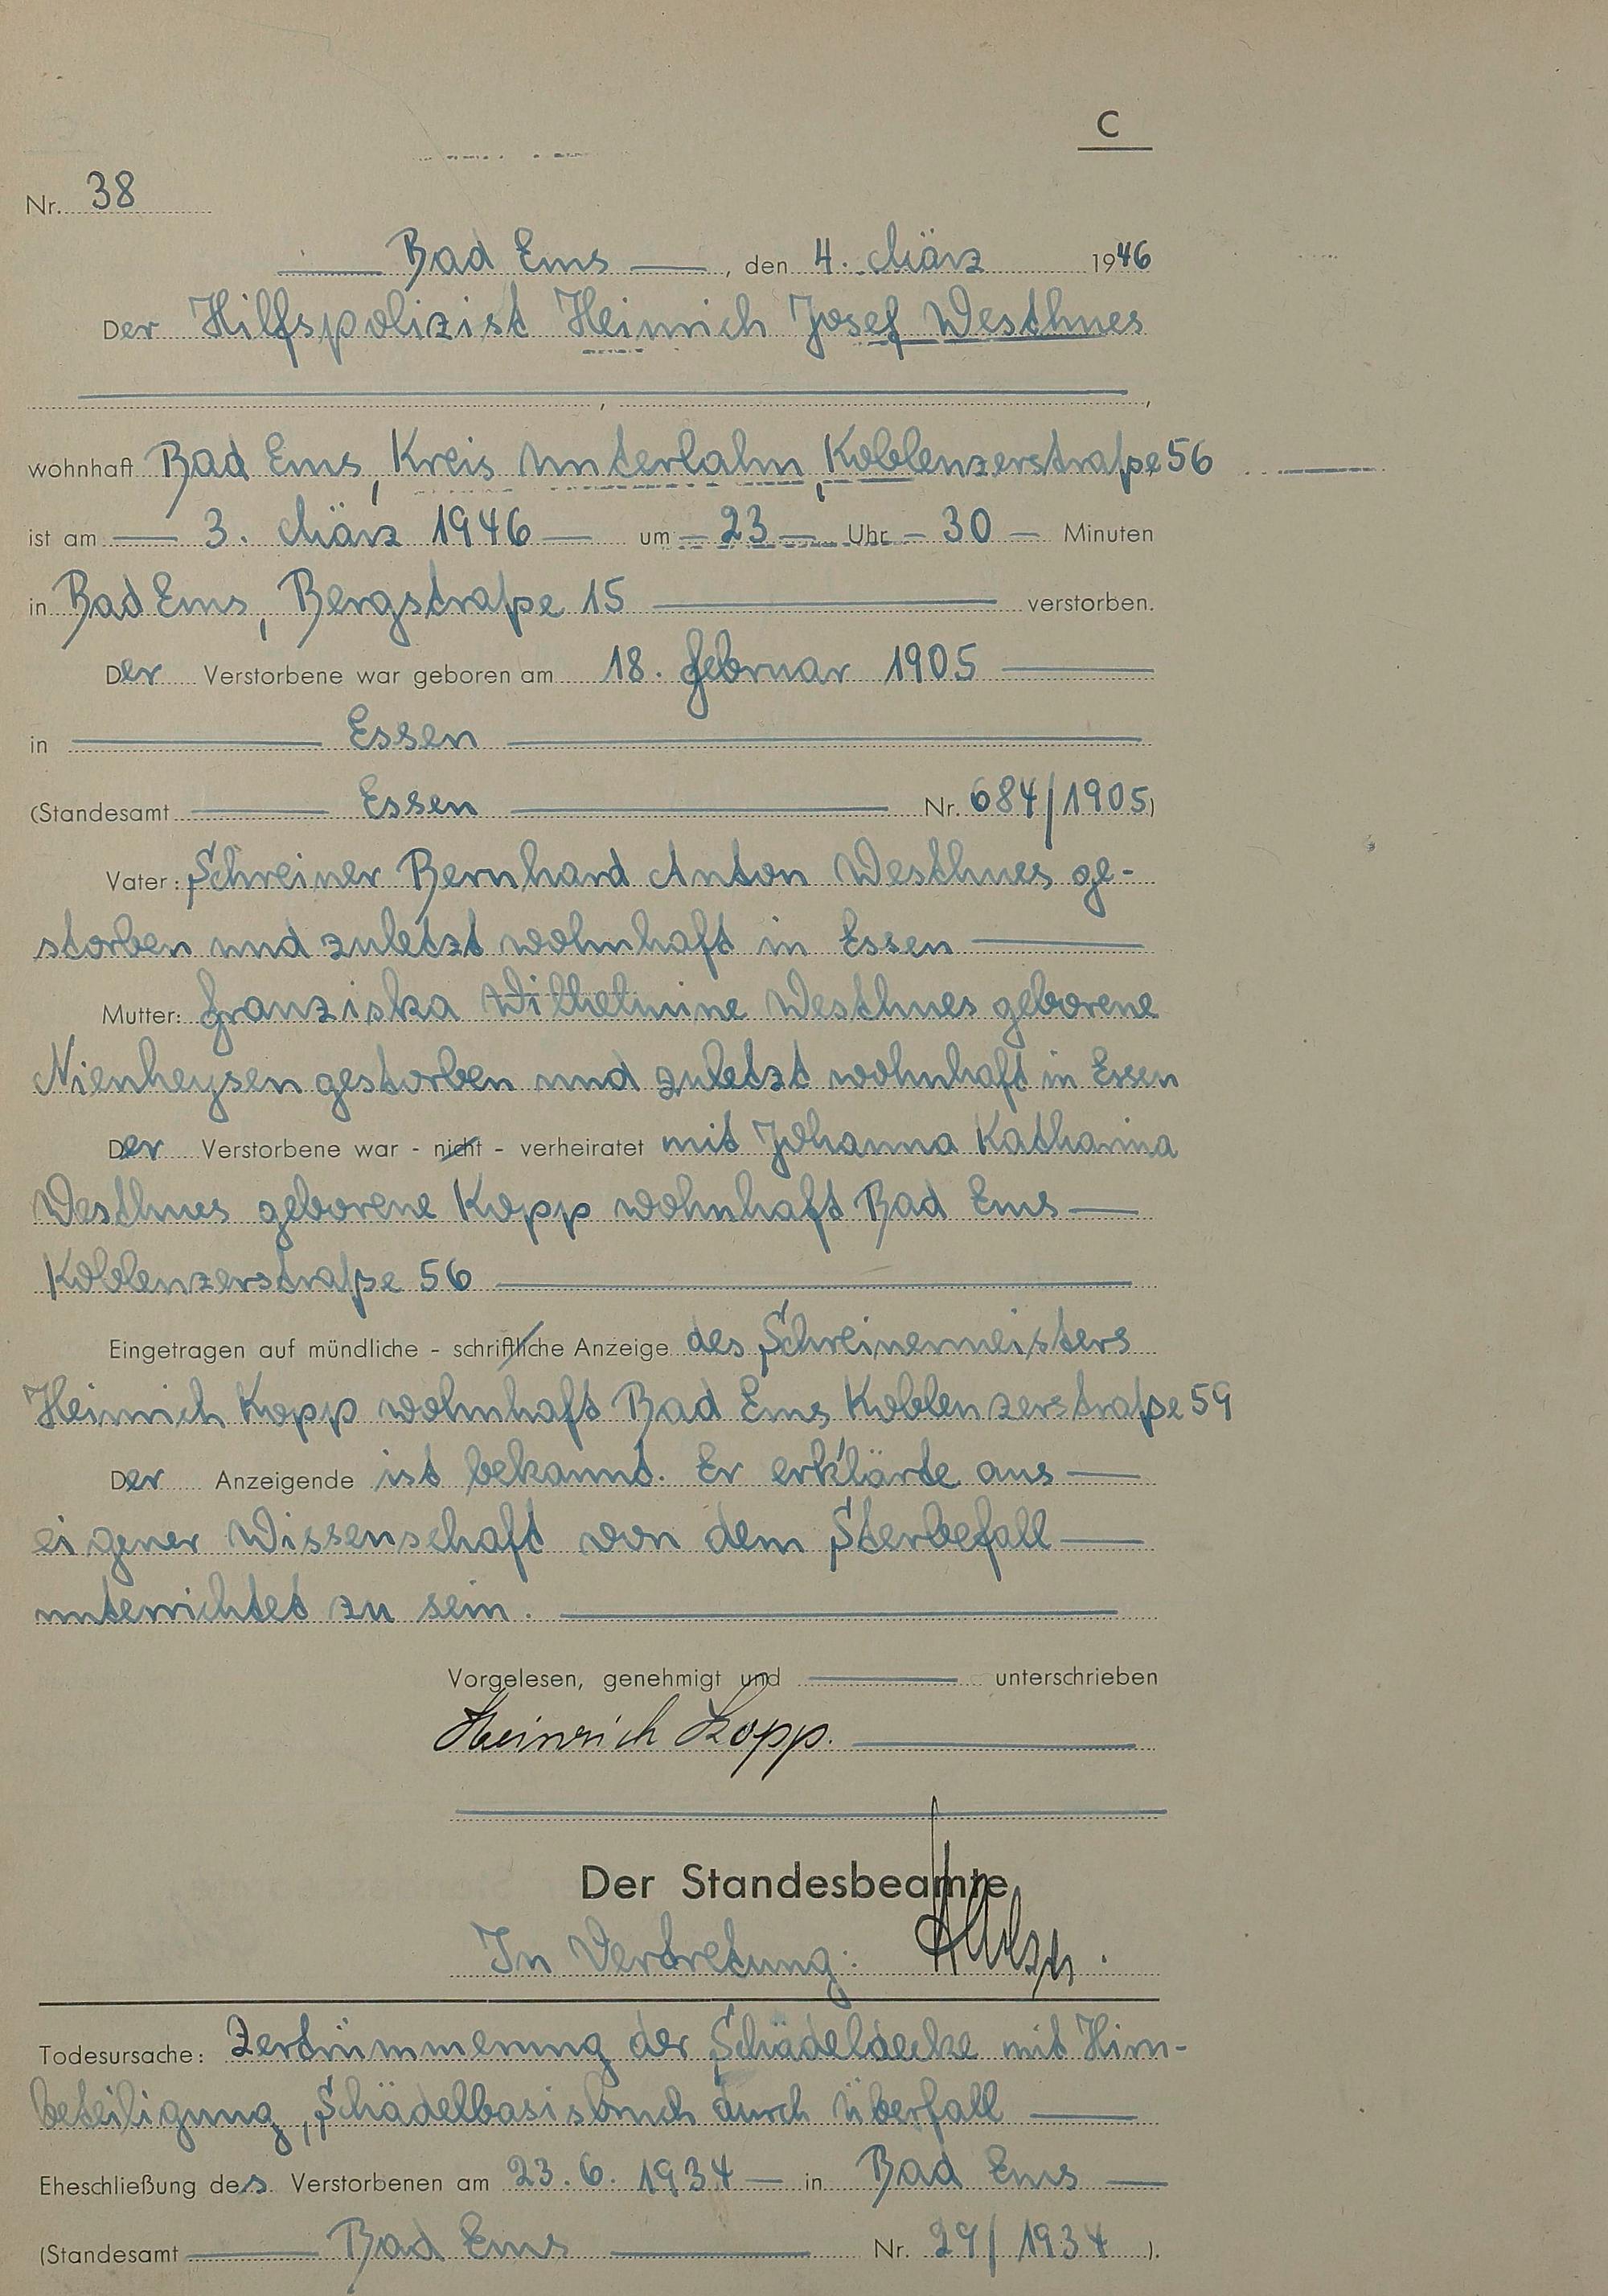 C
Nr. 38
Bad Ems, den 4. März 1946
Der Hilfspolizist Heinrich Josef Westhues
wohnhaft Bad Ems, Kreis Unterlahn, Koblenzerstraße 56
ist am 3. März 1946 um 23 Uhr 30 Minuten
in Bad Ems, Bergstraße 15 verstorben.
Der Verstorbene war geboren am 18. Februar 1905
in Essen
(Standesamt Essen Nr. 684/1905)
Vater: Schreiner Bernhard Anton Westhues ge-
storben und zuletzt wohnhaft in Essen
Mutter: Franziska Wilhelmine Westhues geborene
Nienheysen gestorben und zuletzt wohnhaft in Essen
Der Verstorbene war - nicht - verheiratet mit Johanna Katharina
Westhues geborene Kopp wohnhaft Bad Ems
Koblenzerstraße 56
Eingetragen auf mündliche - schriftliche Anzeige des Schreinermeisters
Heinrich Kopp wohnhaft Bad Ems Koblenzerstraße 59
Der Anzeigende ist bekannt. Er erklärte aus
eigener Wissenschaft von dem Sterbefall
unterrichtet zu sein.
Vorgelesen, genehmigt und unterschrieben
Heinrich Kopp.
Der Standesbeamte
In Vertretung:
Todesursache: Zertrümmerung der Schädeldecke mit Hirn-
beteiligung, Schädelbasisbruch durch Überfall
Eheschließung des Verstorbenen am 23.6.1934 in Bad Ems
(Standesamt Bad Ems Nr. 29/1934).